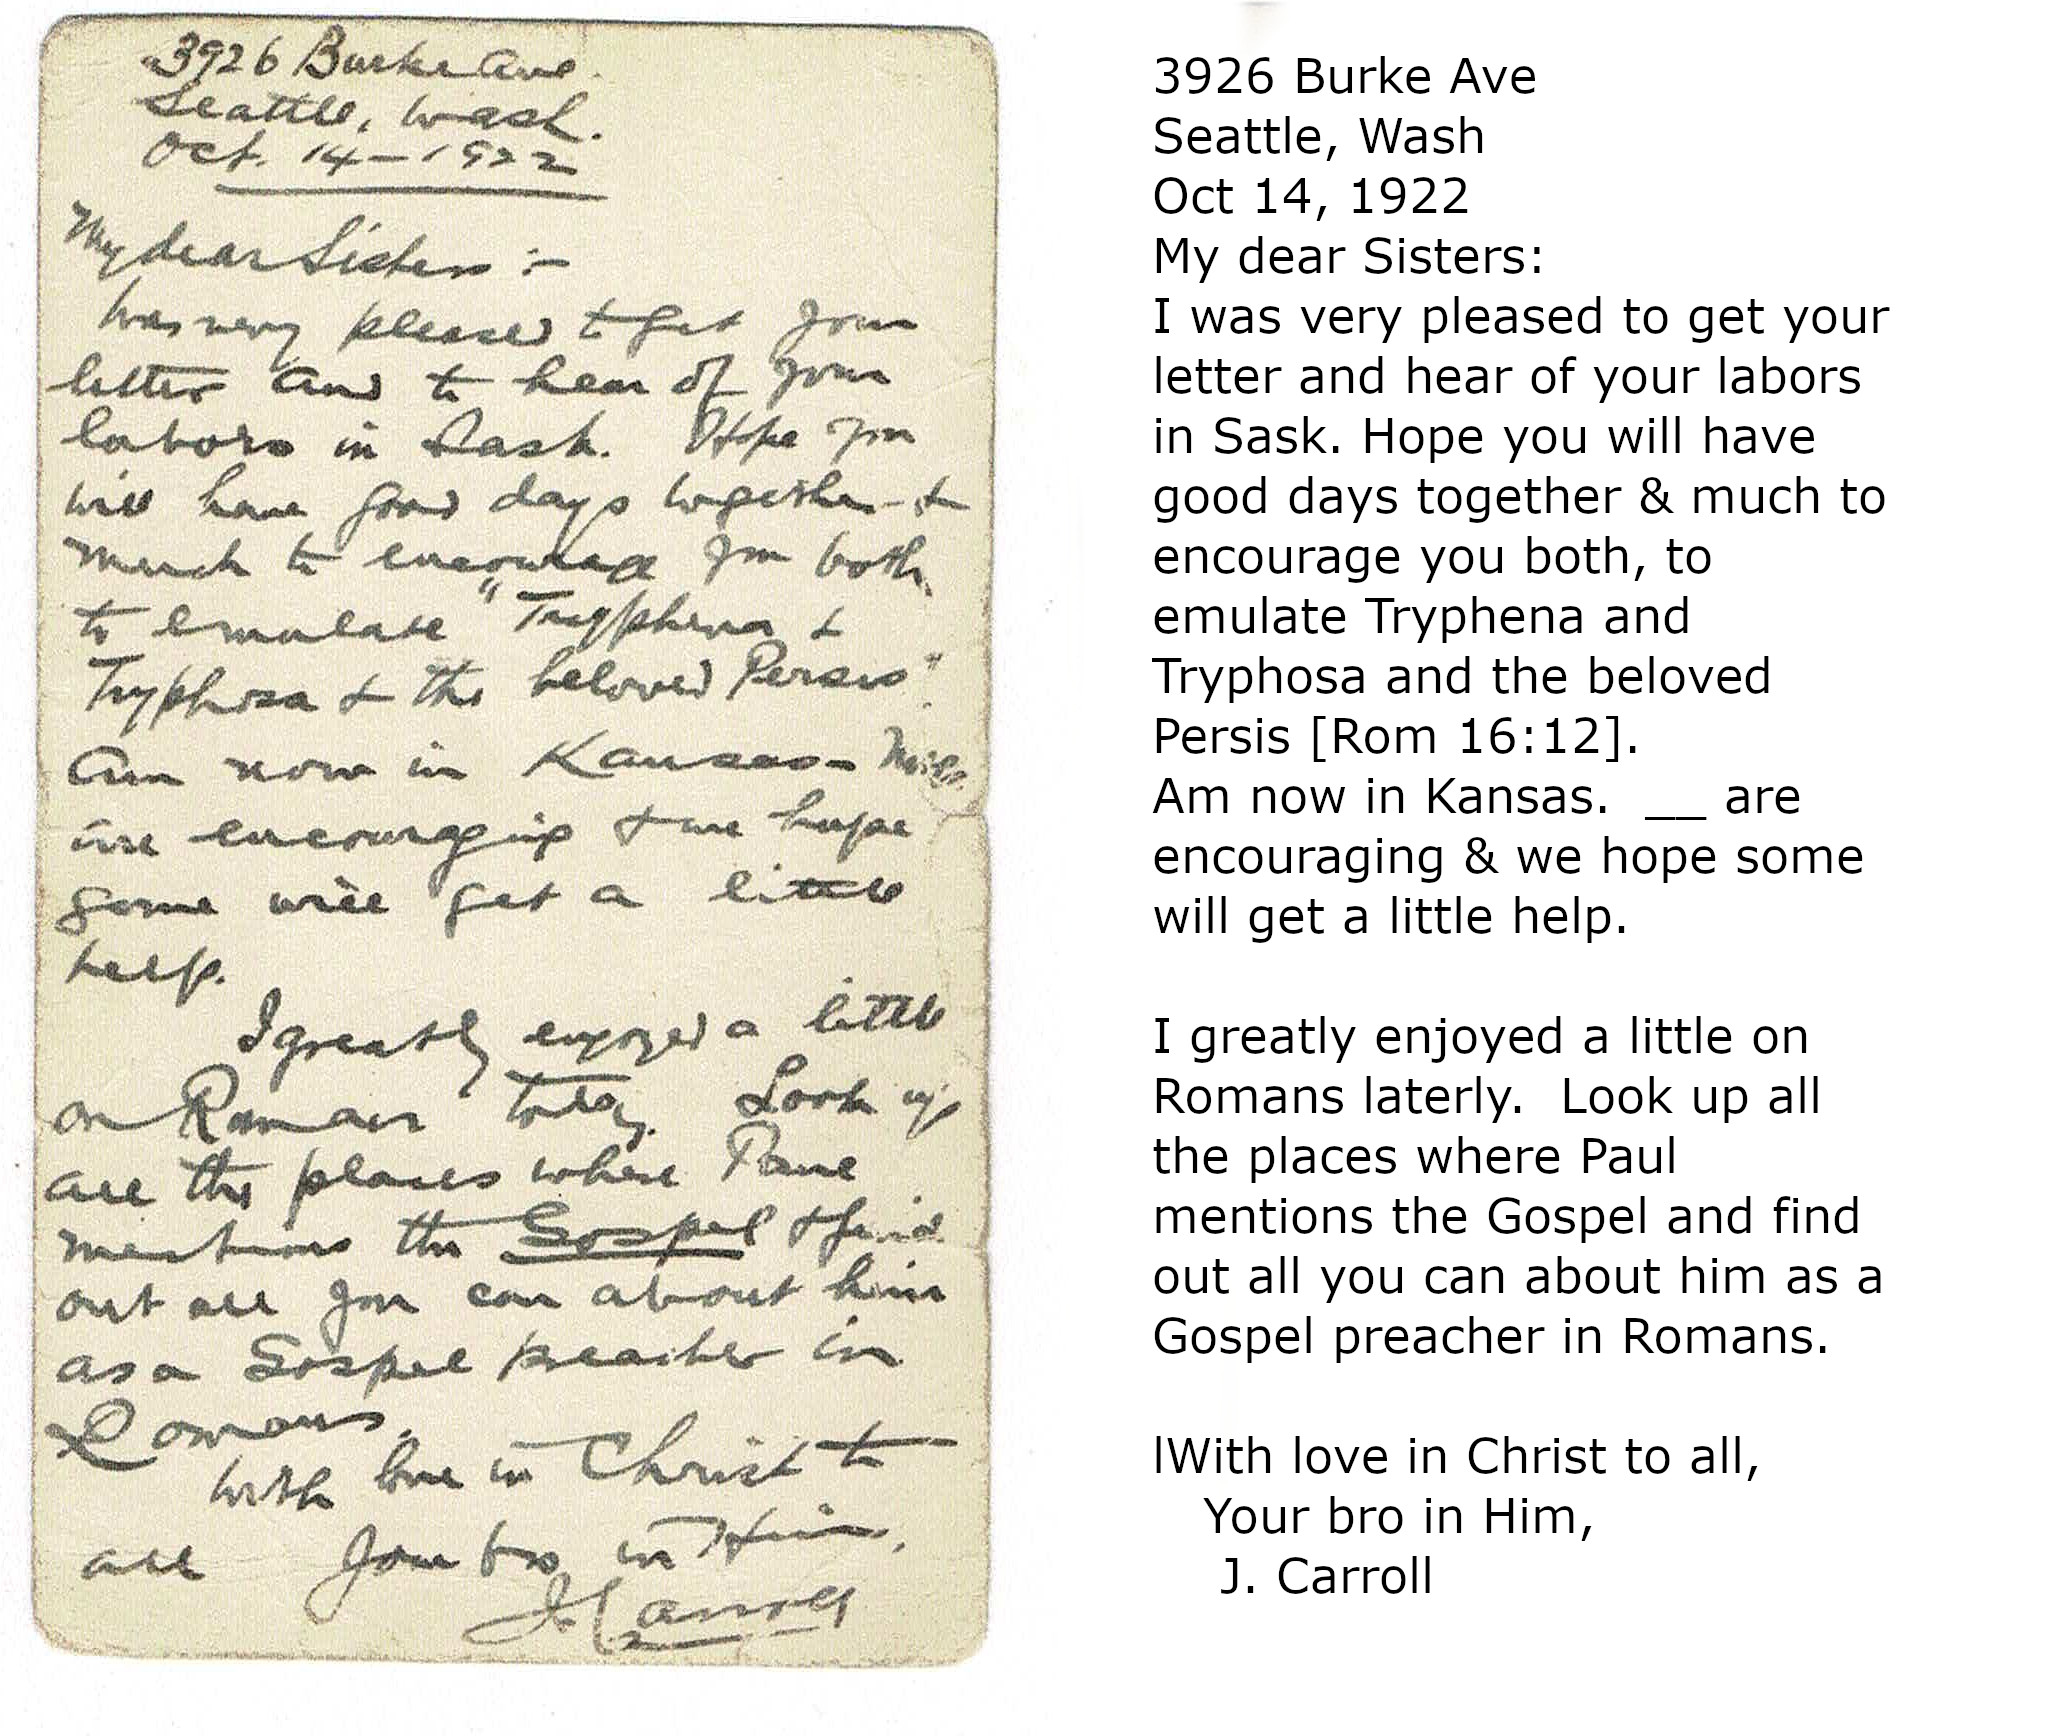 3926 Burke Ave.
Seattle, Wash.
Oct. 14-1922
My dear Sisters :-
Was very pleased to get your
letter and to hear of your
labors in Sask. Hope you
will have good days together &
much to encourage you both,
to emulate "Tryphena &
Tryphosa & the beloved Persis".
Am now in Kansas-
are encouraging & we hope
some will get a little
help.
I greatly enjoyed a little
on Romans today. Look up
all the places where Paul
mentions the Gospel & find
out all you can about him
as a Gospel preacher in
Romans.
With love in Christ to
all Your bro in Him,
J. Carroll
3926 Burke Ave
Seattle, Wash
Oct 14, 1922
My dear Sisters:
I was very pleased to get your
letter and hear of your labors
in Sask. Hope you will have
good days together & much to
encourage you both, to
emulate Tryphena and
Tryphosa and the beloved
Persis [Rom 16:12].
Am now in Kansas.  __ are
encouraging & we hope some
will get a little help.
I greatly enjoyed a little on
Romans laterly.  Look up all
the places where Paul
mentions the Gospel and find
out all you can about him as a
Gospel preacher in Romans.
lWith love in Christ to all,
Your bro in Him,
J. Carroll